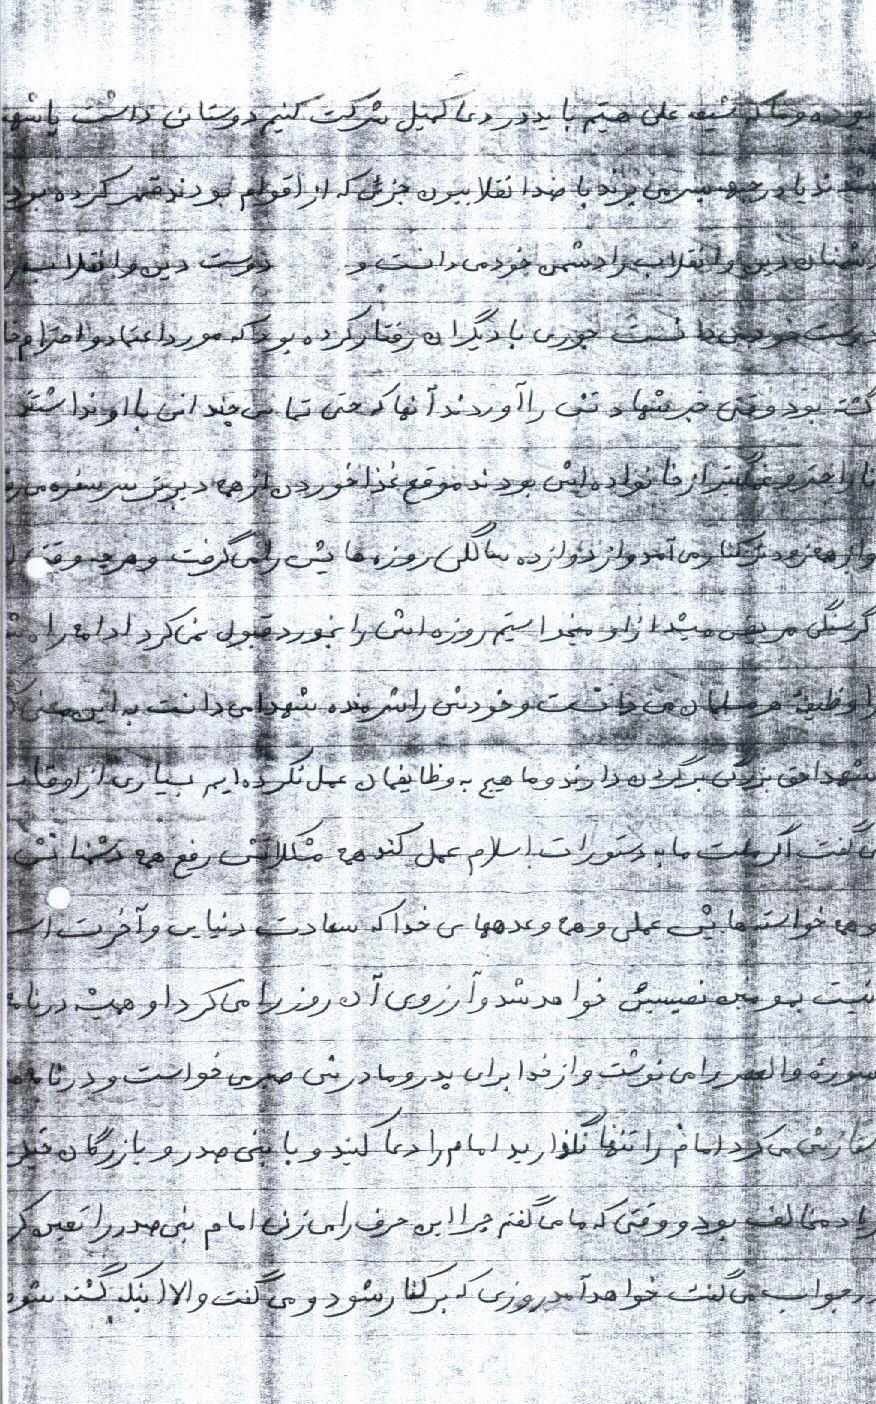 بوده و ما که شیعه علی هستیم باید در دعا کمیل شرکت کنیم دوستانی داشت یا شهید
شدند یا در جبهه بسر می برند با ضد انقلابیون جزئی که از اقوام بودند قهر کرده بود
دشمنان دین و انقلاب را دشمن خود می دانست و دوست دین و انقلاب را
دوست خود می دانست جوری با دیگران رفتار کرده بود که مورد اعتماد و احترام
گشته بود وقتی خبر شهادتش را آوردند آنها که حتی تماس چندانی با او نداشتند
ناراحتر و غمگینتر از خانواده اش بودند موقع غذا خوردن از همه دیرتر سر سفره می
و از همه زودتر کنار می آمد و از دوازده سالگی روزه هایش را می گرفت و هر چه وقتی
گرسنگی مریض میشد از او میخواستیم روزه اش را بخورد قبول نمی کرد ادامه راه
را وظیفه هر مسلمان می دانست و خودش را شرمنده شهدا می دانست به این معنی
شهدا حق بزرگی بر گردن دارند و ما هیچ به وظایفمان عمل نکرده ایم بسیاری از اوقات
می گفت اگر ملت ما به دستورات اسلام عمل کند همه مشکلاتش رفع همه دشمنانش
و همه خواسته هایش عملی و همه وعدههای خدا که سعادت دنیایی و آخرت
نصیبش خواهد شد و آرزوی آن روز را می کرد او همیشه در نامه
سوره والعصر را می نوشت و از خدا برای پدر و مادرش صبر می خواست و در نامه
سفارش می کرد امام را تنها نگذارید امام را دعا کنید و با بنی صدر و بازرگان
زیاد مخالف بود و وقتی که ما می گفتم چرا این حرف را می زنی امام بنی صدر را تعین
در جواب می گفت خواهد آمد روزی که بر کنار شود و می گفت والا اینکه گشته شود